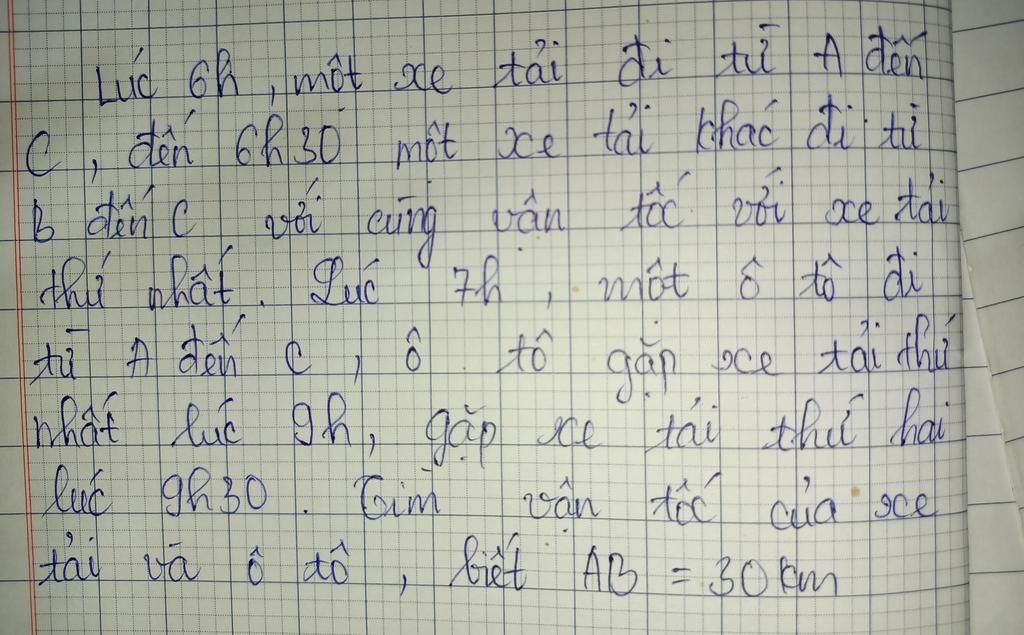 Lúc 6h, một xe tải đi từ A đến
C, đến 6h30 một xe tải khác đi từ
B đến C với cùng vận tốc với xe tải
thứ nhất. Lúc 7h, một ô tô đi
từ A đến C, ô tô gặp xe tải thứ
nhất lúc 9h, gặp xe tải thứ hai
lúc 9h30. Tìm vận tốc của xe
tải và ô tô, biết AB = 30 km